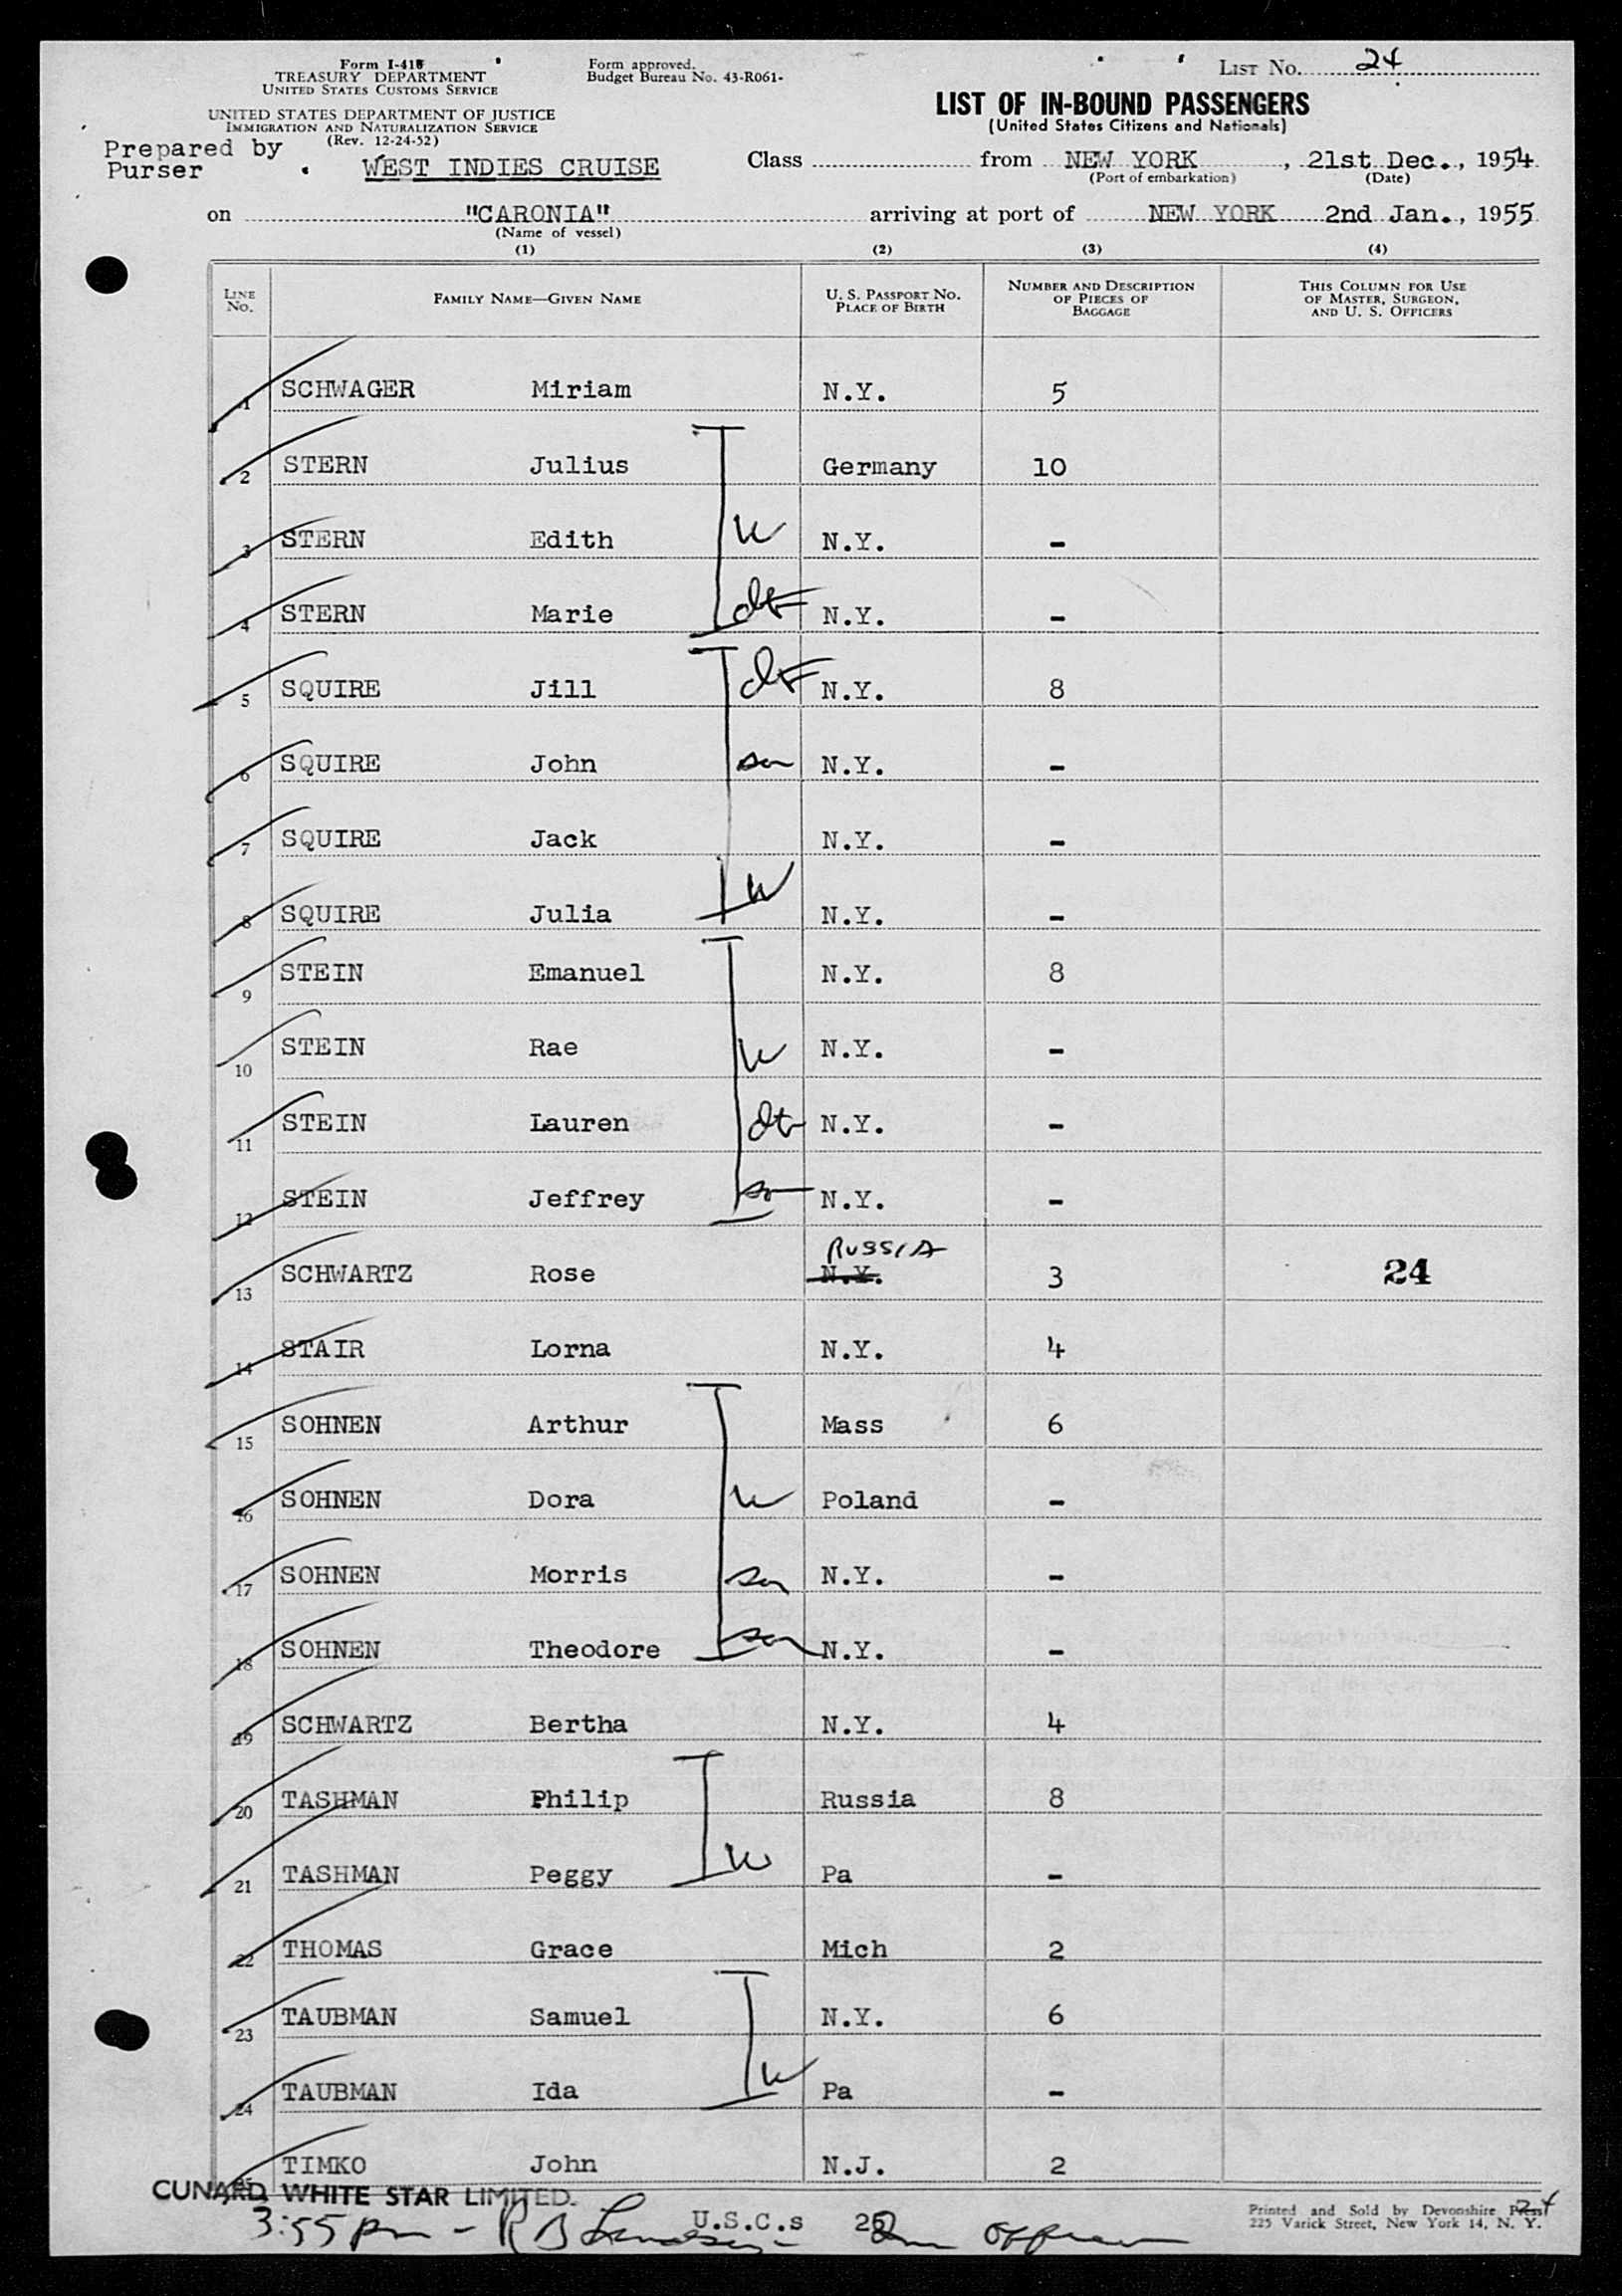 Form I-418
TREASURY DEPARTMENT
UNITED STATES CUSTOMS SERVICE
UNITED STATES DEPARTMENT OF JUSTICE
IMMIGRATION AND NATURALIZATION SERVICE
(Rev. 12-24-52)
Form approved.
Budget Bureau No. 43-R061-
LIST No. 24
LIST OF IN-BOUND PASSENGERS
(United States Citizens and Nationals)
Prepared by
Purser
WEST INDIES CRUISE Class from NEW YORK, 21st Dec., 1954
(Port of embarkation) (Date)
on "CARONIA" arriving at port of NEW YORK 2nd Jan., 1955
(Name of vessel)
(1) (2) (3) (4)
LINE No. FAMILY NAME—GIVEN NAME U. S. PASSPORT No. PLACE OF BIRTH NUMBER AND DESCRIPTION OF PIECES OF BAGGAGE THIS COLUMN FOR USE OF MASTER, SURGEON, AND U. S. OFFICERS
1 SCHWAGER Miriam N.Y. 5
2 STERN Julius Germany 10
3 STERN Edith W N.Y. -
4 STERN Marie dtr N.Y. -
5 SQUIRE Jill dtr N.Y. 8
6 SQUIRE John son N.Y. -
7 SQUIRE Jack N.Y. -
8 SQUIRE Julia W N.Y. -
9 STEIN Emanuel N.Y. 8
10 STEIN Rae W N.Y. -
11 STEIN Lauren dtr N.Y. -
12 STEIN Jeffrey son N.Y. -
RUSSIA
13 SCHWARTZ Rose N.Y. 3 24
14 STAIR Lorna N.Y. 4
15 SOHNEN Arthur Mass 6
16 SOHNEN Dora W Poland -
17 SOHNEN Morris son N.Y. -
18 SOHNEN Theodore son N.Y. -
19 SCHWARTZ Bertha N.Y. 4
20 TASHMAN Philip Russia 8
21 TASHMAN Peggy W Pa -
22 THOMAS Grace Mich 2
23 TAUBMAN Samuel N.Y. 6
24 TAUBMAN Ida W Pa -
25 TIMKO John N.J. 2
CUNARD WHITE STAR LIMITED.
3:55 pm - R B U.S.C.s 25
Printed and Sold by Devonshire Press
225 Varick Street, New York 14, N. Y.
24